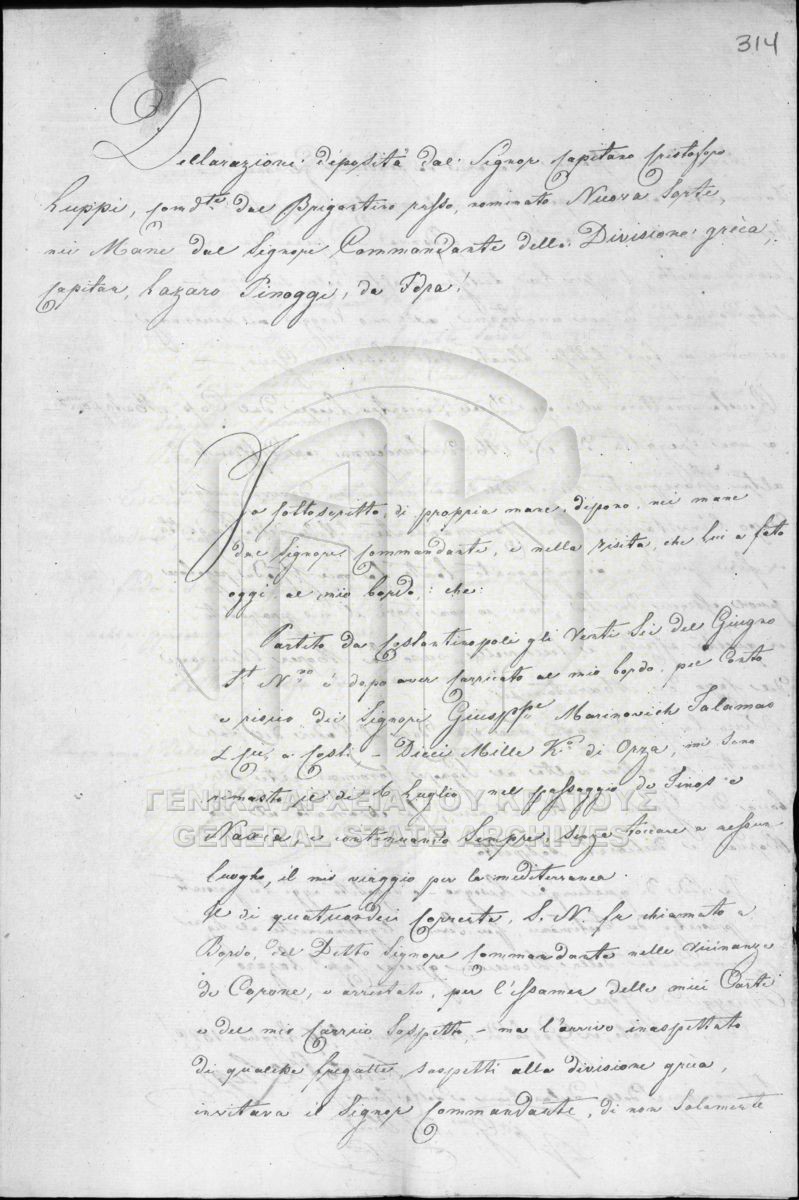 314
Dellarazione deposita dal Signor Capitano Cristofapo
Luppi, Comd.te dal Brigantino russo, nominato Nuova Sorte,
nei Mane dal Signore Commandante della Divisione grèca,
Capitan, Lazaro Pinoggi, da Idra!
Jo sottoscritto, di propria mane, depono, nei mane
dal Signore Commandante, e nella visita, che lui a fato
oggi al mio bordo: che:
Partito da Costantinopoli gli Venti Sei del Giugno
S.t N.vo è dopo aver carricato al mio bordo, per Conto
e risico dei Signori Giuseppe Marinovich Salamao
& C. a Costi - Dieci Mille K.o di Orza, mi sono
rimasto il di 6 Luglio nel passaggio da Tinos e
Naxia, e continuando Sempre senza toccare a nessun
luogho, il mio viaggio per la mediterranea.
Il di quatuordeci Corrente, S. N. fu chiamato a
Bordo, del Ditto Signore Commandante nelle vicinanze
da Corone, e arrestato, per l'essamen delle miei Carte
e del mio Carrico Sospetto, - ma l'arrivo inaspettato
di qualche fregatte, sospetti alla divisione grèca,
invitava il Signor Commandante, di non Solamente
ΓΕΝΙΚΑ ΑΡΧΕΙΑ ΤΟΥ ΚΡΑΤΟΥΣ
GENERAL STATE ARCHIVES